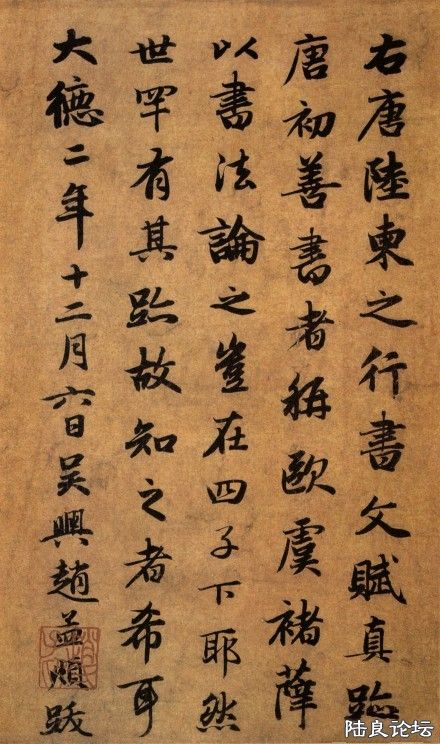 右唐陸柬之行書文賦真跡
唐初善書者稱歐虞褚薛
以書法論之豈在四子下耶然
世罕有其跡故知之者希耳
大德二年十二月六日吴興趙孟頫跋
趙氏子昂
陆良论坛